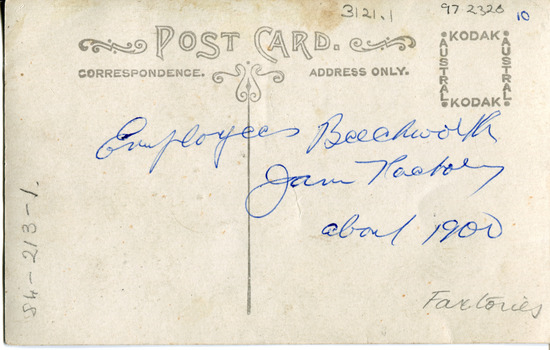 3121.1
97-2328
10
POST CARD.
CORRESPONDENCE.
ADDRESS ONLY.
KODAK
AUSTRAL
AUSTRAL
KODAK
Employees Beechworth
Jam Factory
about 1900
84-213-1.
Factories